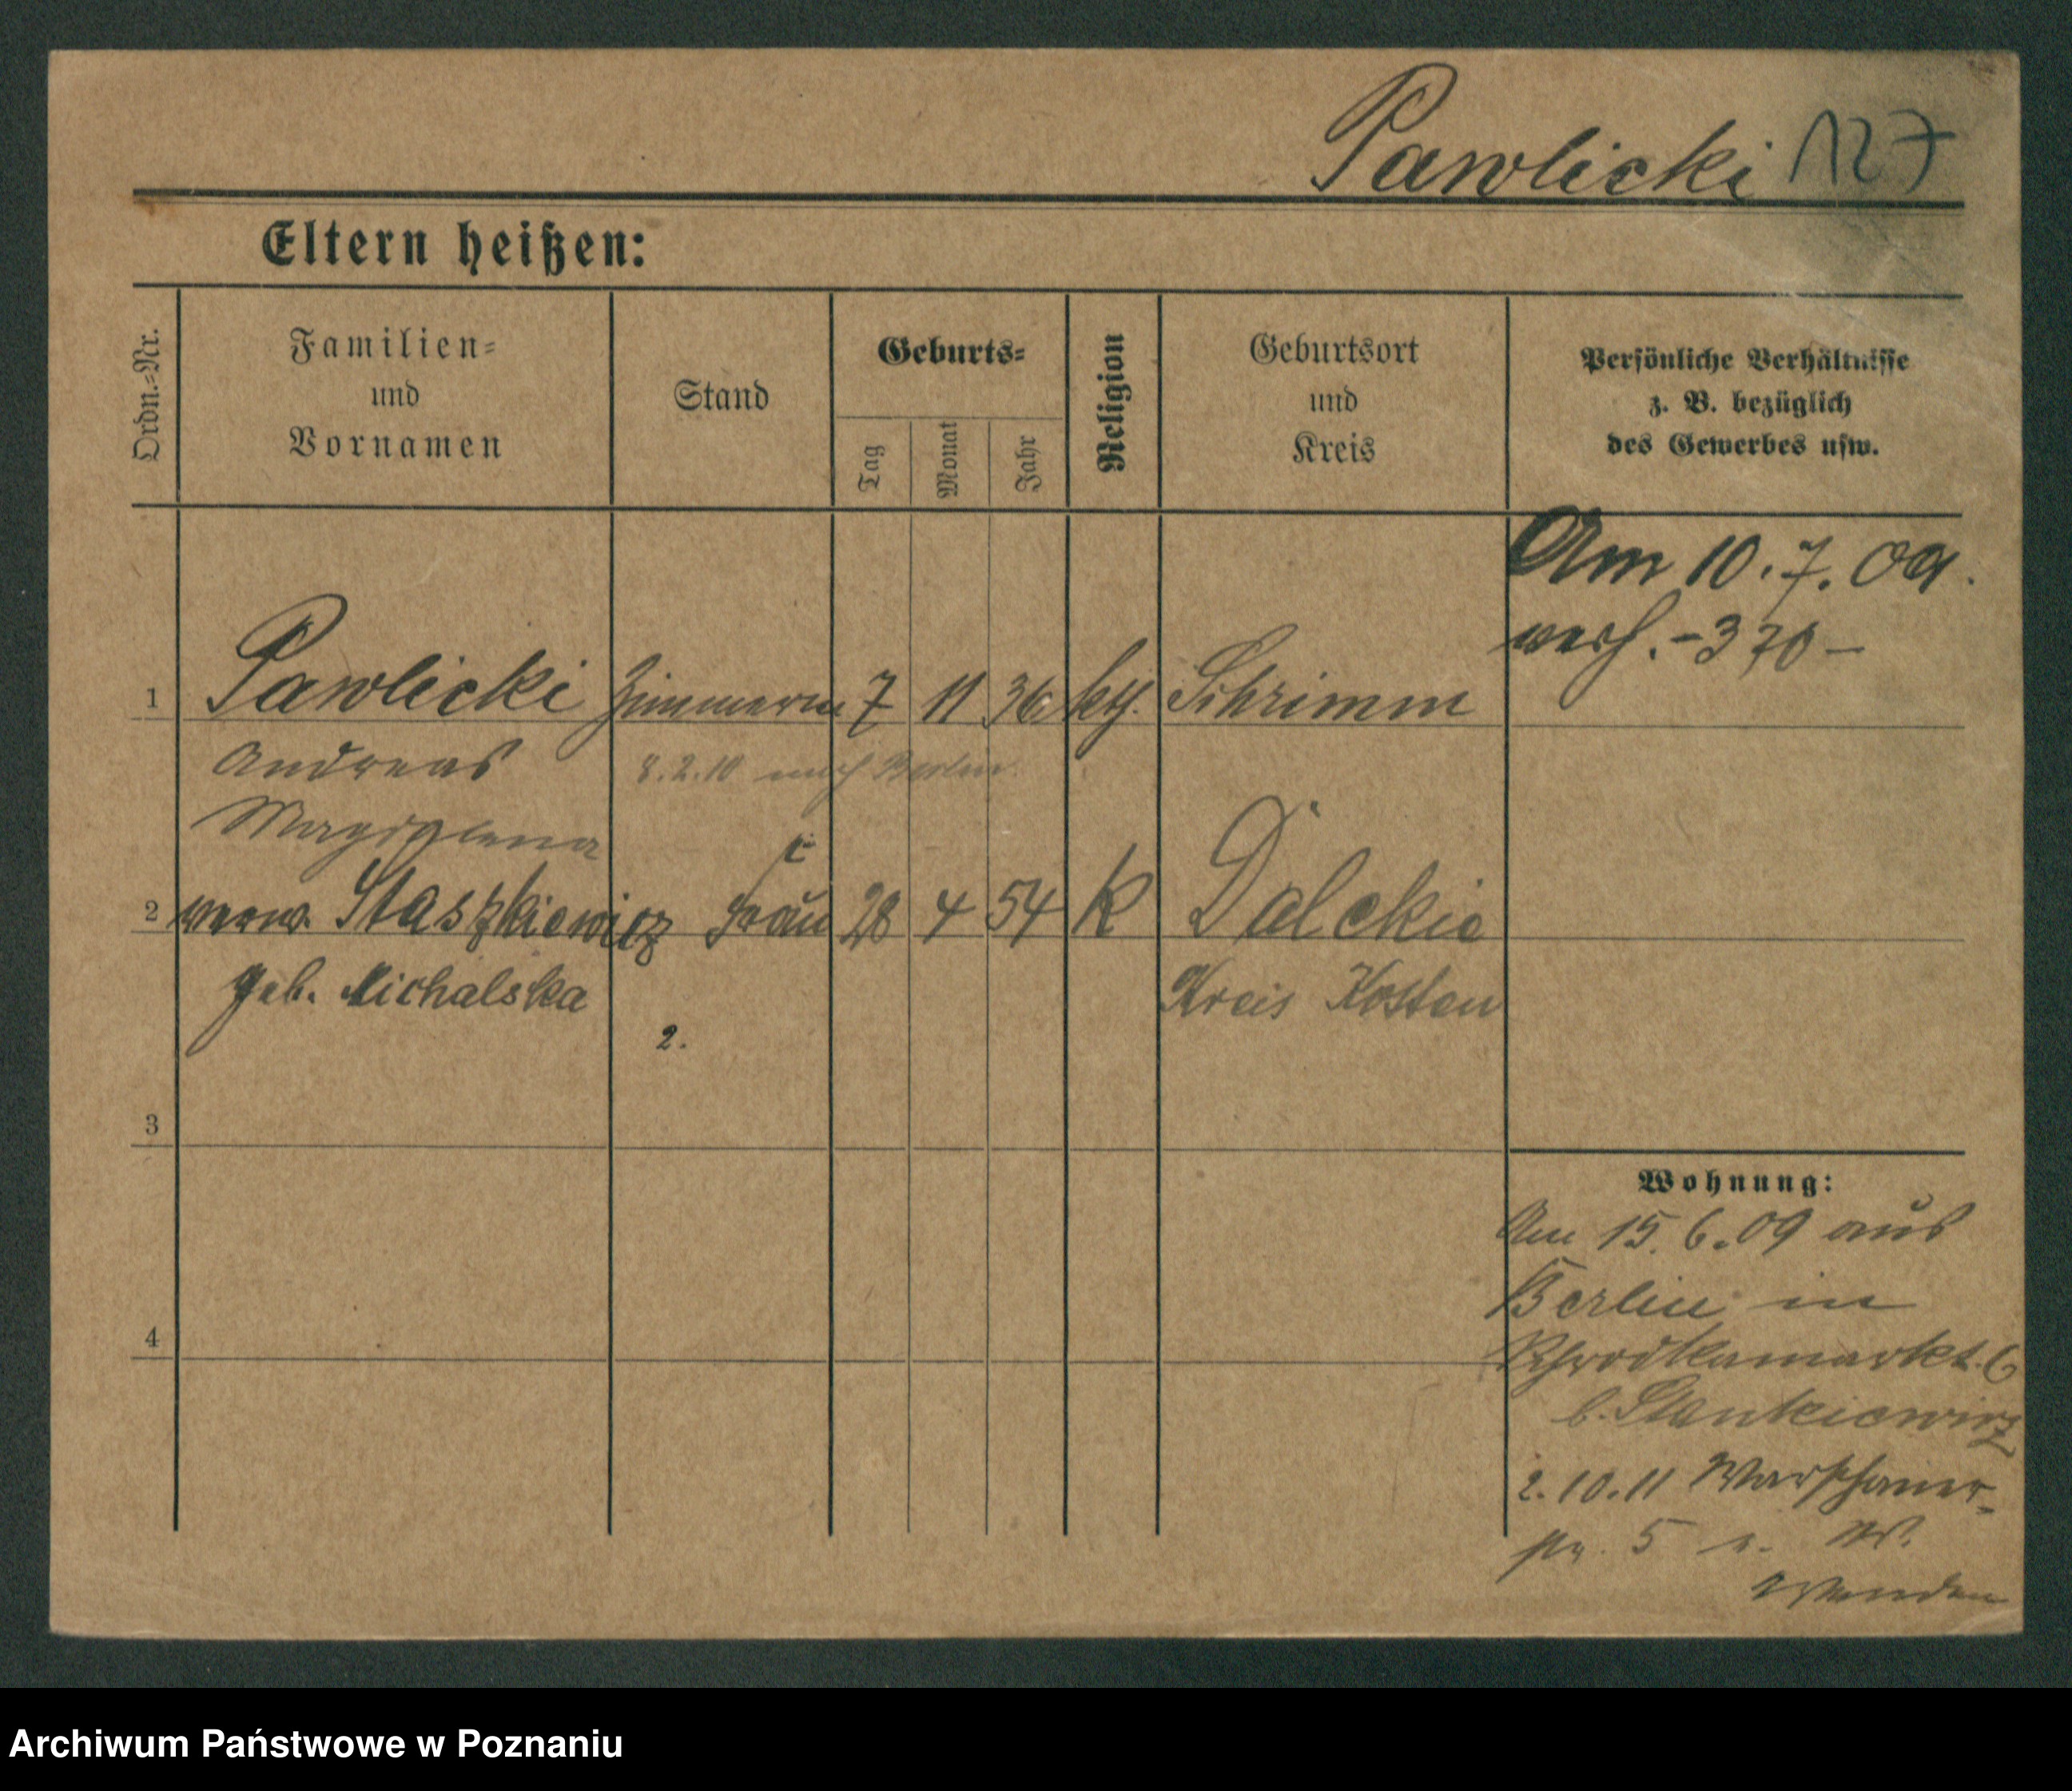 Pawlicki 127
Eltern heißen:
Ordn.=Nr.
Familien=
und
Vornamen
Stand
Geburts=
Tag
Monat
Jahr
Religion
Geburtsort
und
Kreis
Persönliche Verhältnisse
z. B. bezüglich
des Gewerbes usw.
Am 10.7.09.
verh. -370-
1 Pawlicki Zimmerm 7 11 36 kth. Schrimm
Andreas 8.2.10 nach Berlin.
Magdalena
2 verw. Staszkiewicz Frau 28 4 54 K Dalekie
geb. Michalska Kreis Kosten
2.
3
4
Wohnung:
Am 15.6.09 aus
Berlin in
Schrodkamarkt 6
b. Stankiewicz
2.10.11 Warschauer-
str. 5 b. W.
Wenden
Archiwum Państwowe w Poznaniu